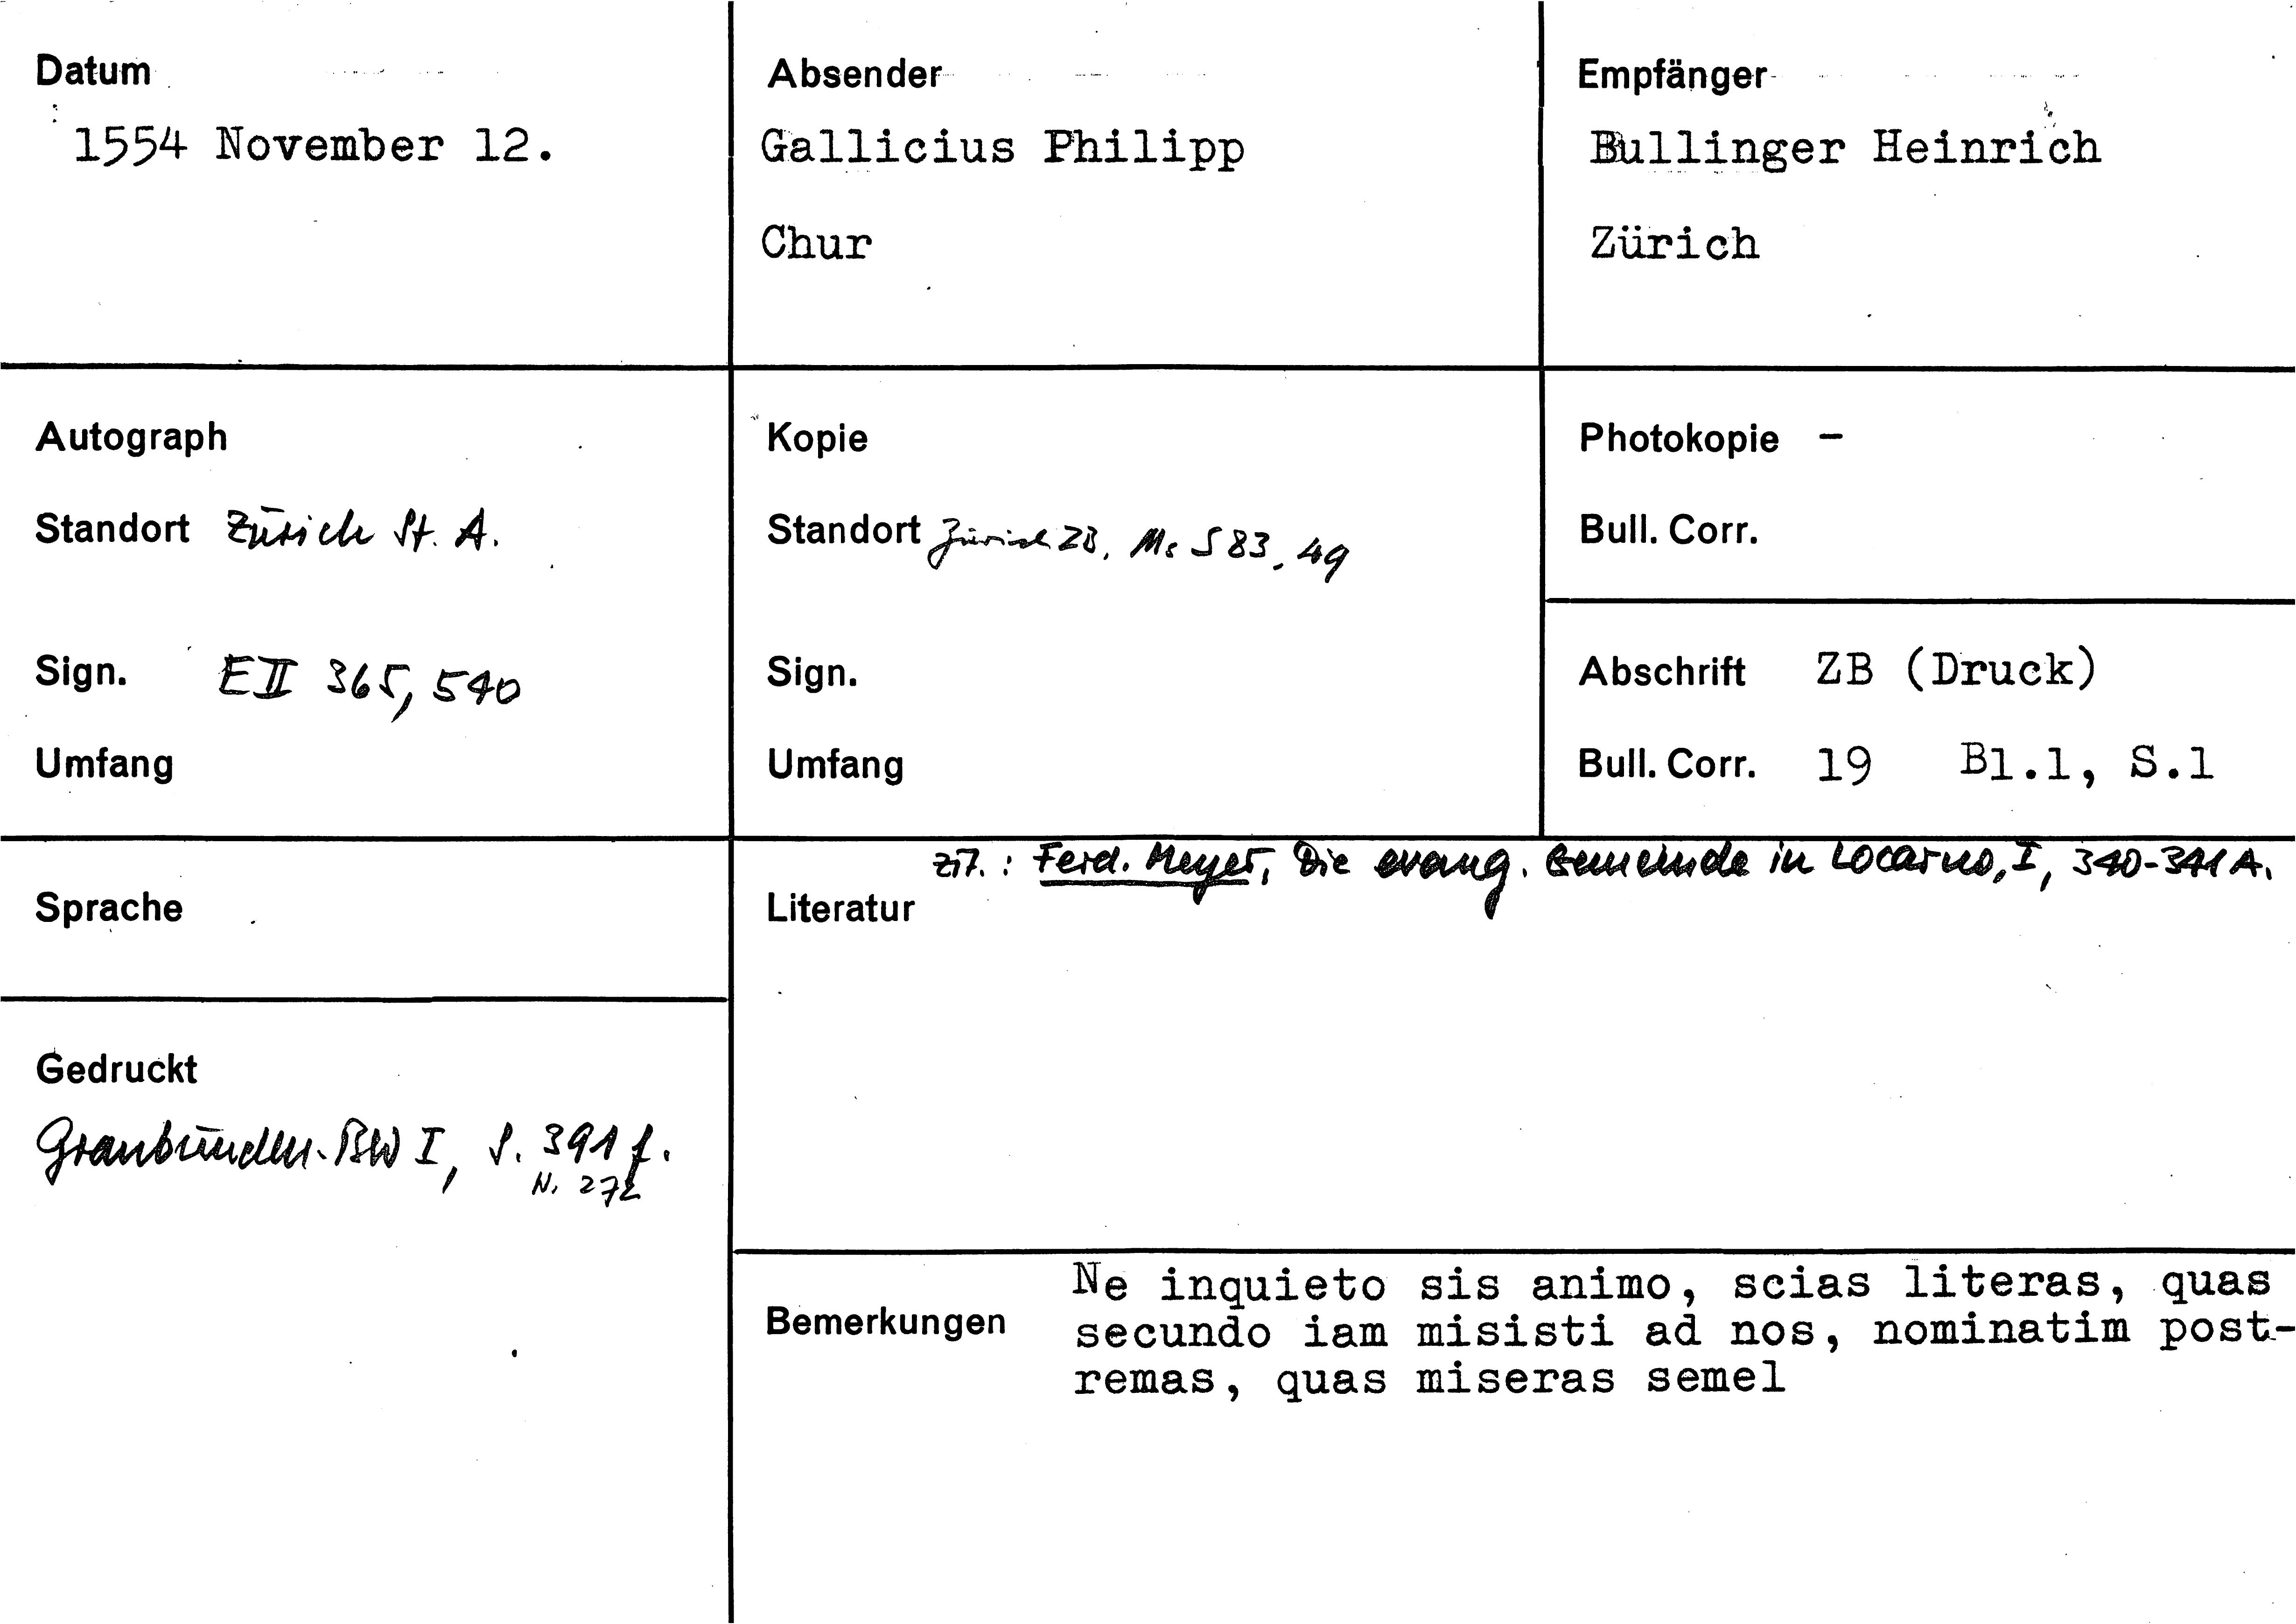 Datum
1554 November 12.
Absender
Gallicius Philipp
Chur
Empfänger
Bullinger Heinrich
Zürich
Autograph
Standort Zürich St. A.
Sign. E II 365, 540
Umfang
Kopie
Standort Zürich ZB, Ms S 83, 49
Sign.
Umfang
Photokopie -
Bull. Corr.
Abschrift ZB (Druck)
Bull. Corr. 19 Bl.1, S.1
Sprache
Gedruckt
Graubünden-BW I, S. 391 f.
N. 272
zit.: Ferd. Meyer, Die evang. Gemeinde in Locarno, I, 340-341 A.
Literatur
Bemerkungen
Ne inquieto sis animo, scias literas, quas
secundo iam misisti ad nos, nominatim post-
remas, quas miseras semel